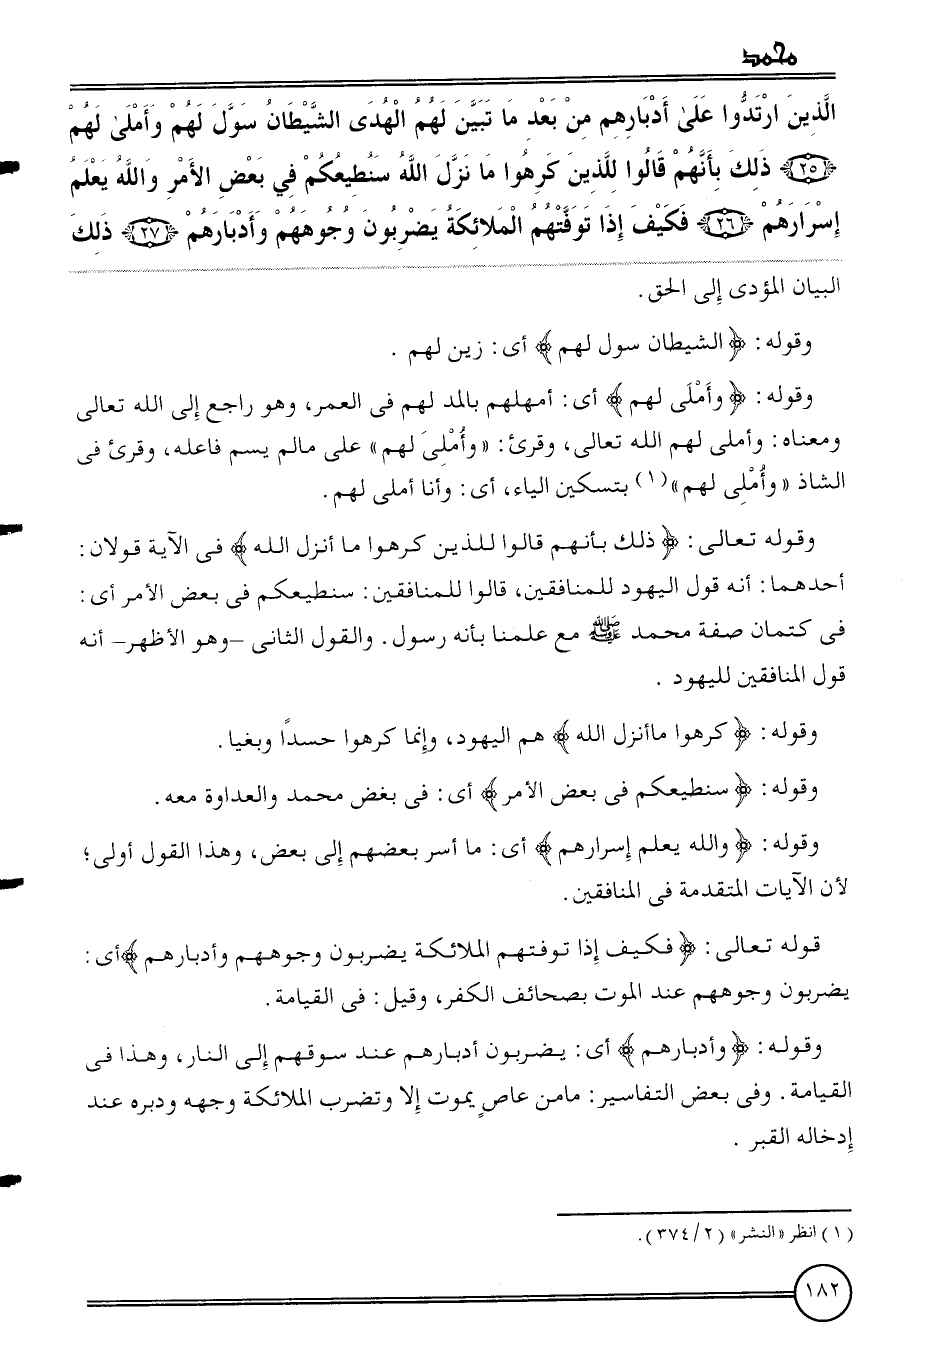 محمد
الَّذِينَ ارْتَدُّوا عَلَىٰ أَدْبَارِهِم مِنْ بَعْدِ مَا تَبَيَّنَ لَهُمُ الْهُدَى الشَّيْطَانُ سَوَّلَ لَهُمْ وَأَمْلَىٰ لَهُمْ
﴿٢٥﴾ ذَلِكَ بِأَنَّهُمْ قَالُوا لِلَّذِينَ كَرِهُوا مَا نَزَّلَ اللَّهُ سَنُطِيعُكُمْ فِي بَعْضِ الأَمْرِ وَاللَّهُ يَعْلَمُ
إِسْرَارَهُمْ ﴿٢٦﴾ فَكَيْفَ إِذَا تَوَفَّتْهُمُ الْمَلائِكَةُ يَضْرِبُونَ وُجُوهَهُمْ وَأَدْبَارَهُمْ ﴿٢٧﴾ ذَلِكَ
البيان المؤدى إلى الحق.
وقوله: ﴿ الشيطان سول لهم ﴾ أى: زين لهم .
وقوله: ﴿ وأَمْلَى لهم ﴾ أى: أمهلهم بالمد لهم فى العمر، وهو راجع إلى الله تعالى
ومعناه: وأملى لهم الله تعالى، وقرئ: «وأُمْلِىَ لهم» على مالم يسم فاعله، وقرئ فى
الشاذ «وأُمْلِى لهم»(١) بتسكين الياء، أى: وأنا أملى لهم.
وقوله تعالى: ﴿ ذلك بأنهم قالوا للذين كرهوا ما أنزل الله ﴾ فى الآية قولان:
أحدهما: أنه قول اليهود للمنافقين، قالوا للمنافقين: سنطيعكم فى بعض الأمر أى:
فى كتمان صفة محمد ﷺ مع علمنا بأنه رسول. والقول الثانى -وهو الأظهر- أنه
قول المنافقين لليهود .
وقوله: ﴿ كرهوا ماأنزل الله ﴾ هم اليهود، وإنما كرهوا حسداً وبغيا.
وقوله: ﴿ سنطيعكم فى بعض الأمر ﴾ أى: فى بغض محمد والعداوة معه.
وقوله: ﴿ والله يعلم إسرارهم ﴾ أى: ما أسر بعضهم إلى بعض، وهذا القول أولى؛
لأن الآيات المتقدمة فى المنافقين.
قوله تعالى: ﴿ فكيف إذا توفتهم الملائكة يضربون وجوههم وأدبارهم ﴾أى:
يضربون وجوههم عند الموت بصحائف الكفر، وقيل: فى القيامة.
وقوله: ﴿ وأدبارهم ﴾ أى: يضربون أدبارهم عند سوقهم إلى النار، وهذا فى
القيامة. وفى بعض التفاسير: مامن عاصٍ يموت إلا وتضرب الملائكة وجهه ودبره عند
إدخاله القبر .
(١) انظر «النشر» (٢/ ٣٧٤).
١٨٢